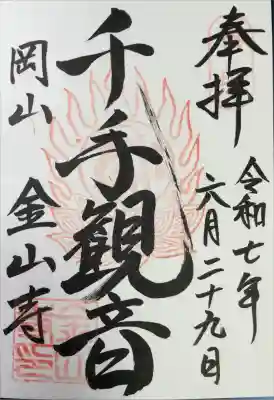 奉拝
令和七年
六月二十九日
千手観音
岡山
金山寺